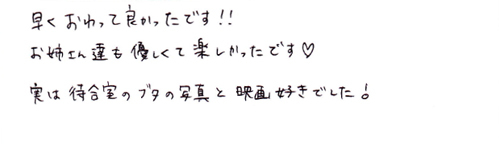 早くおわって良かったです!!
お姉さん達も優しくて楽しかったです♡
実は待合室のブタの写真と映画好きでした!